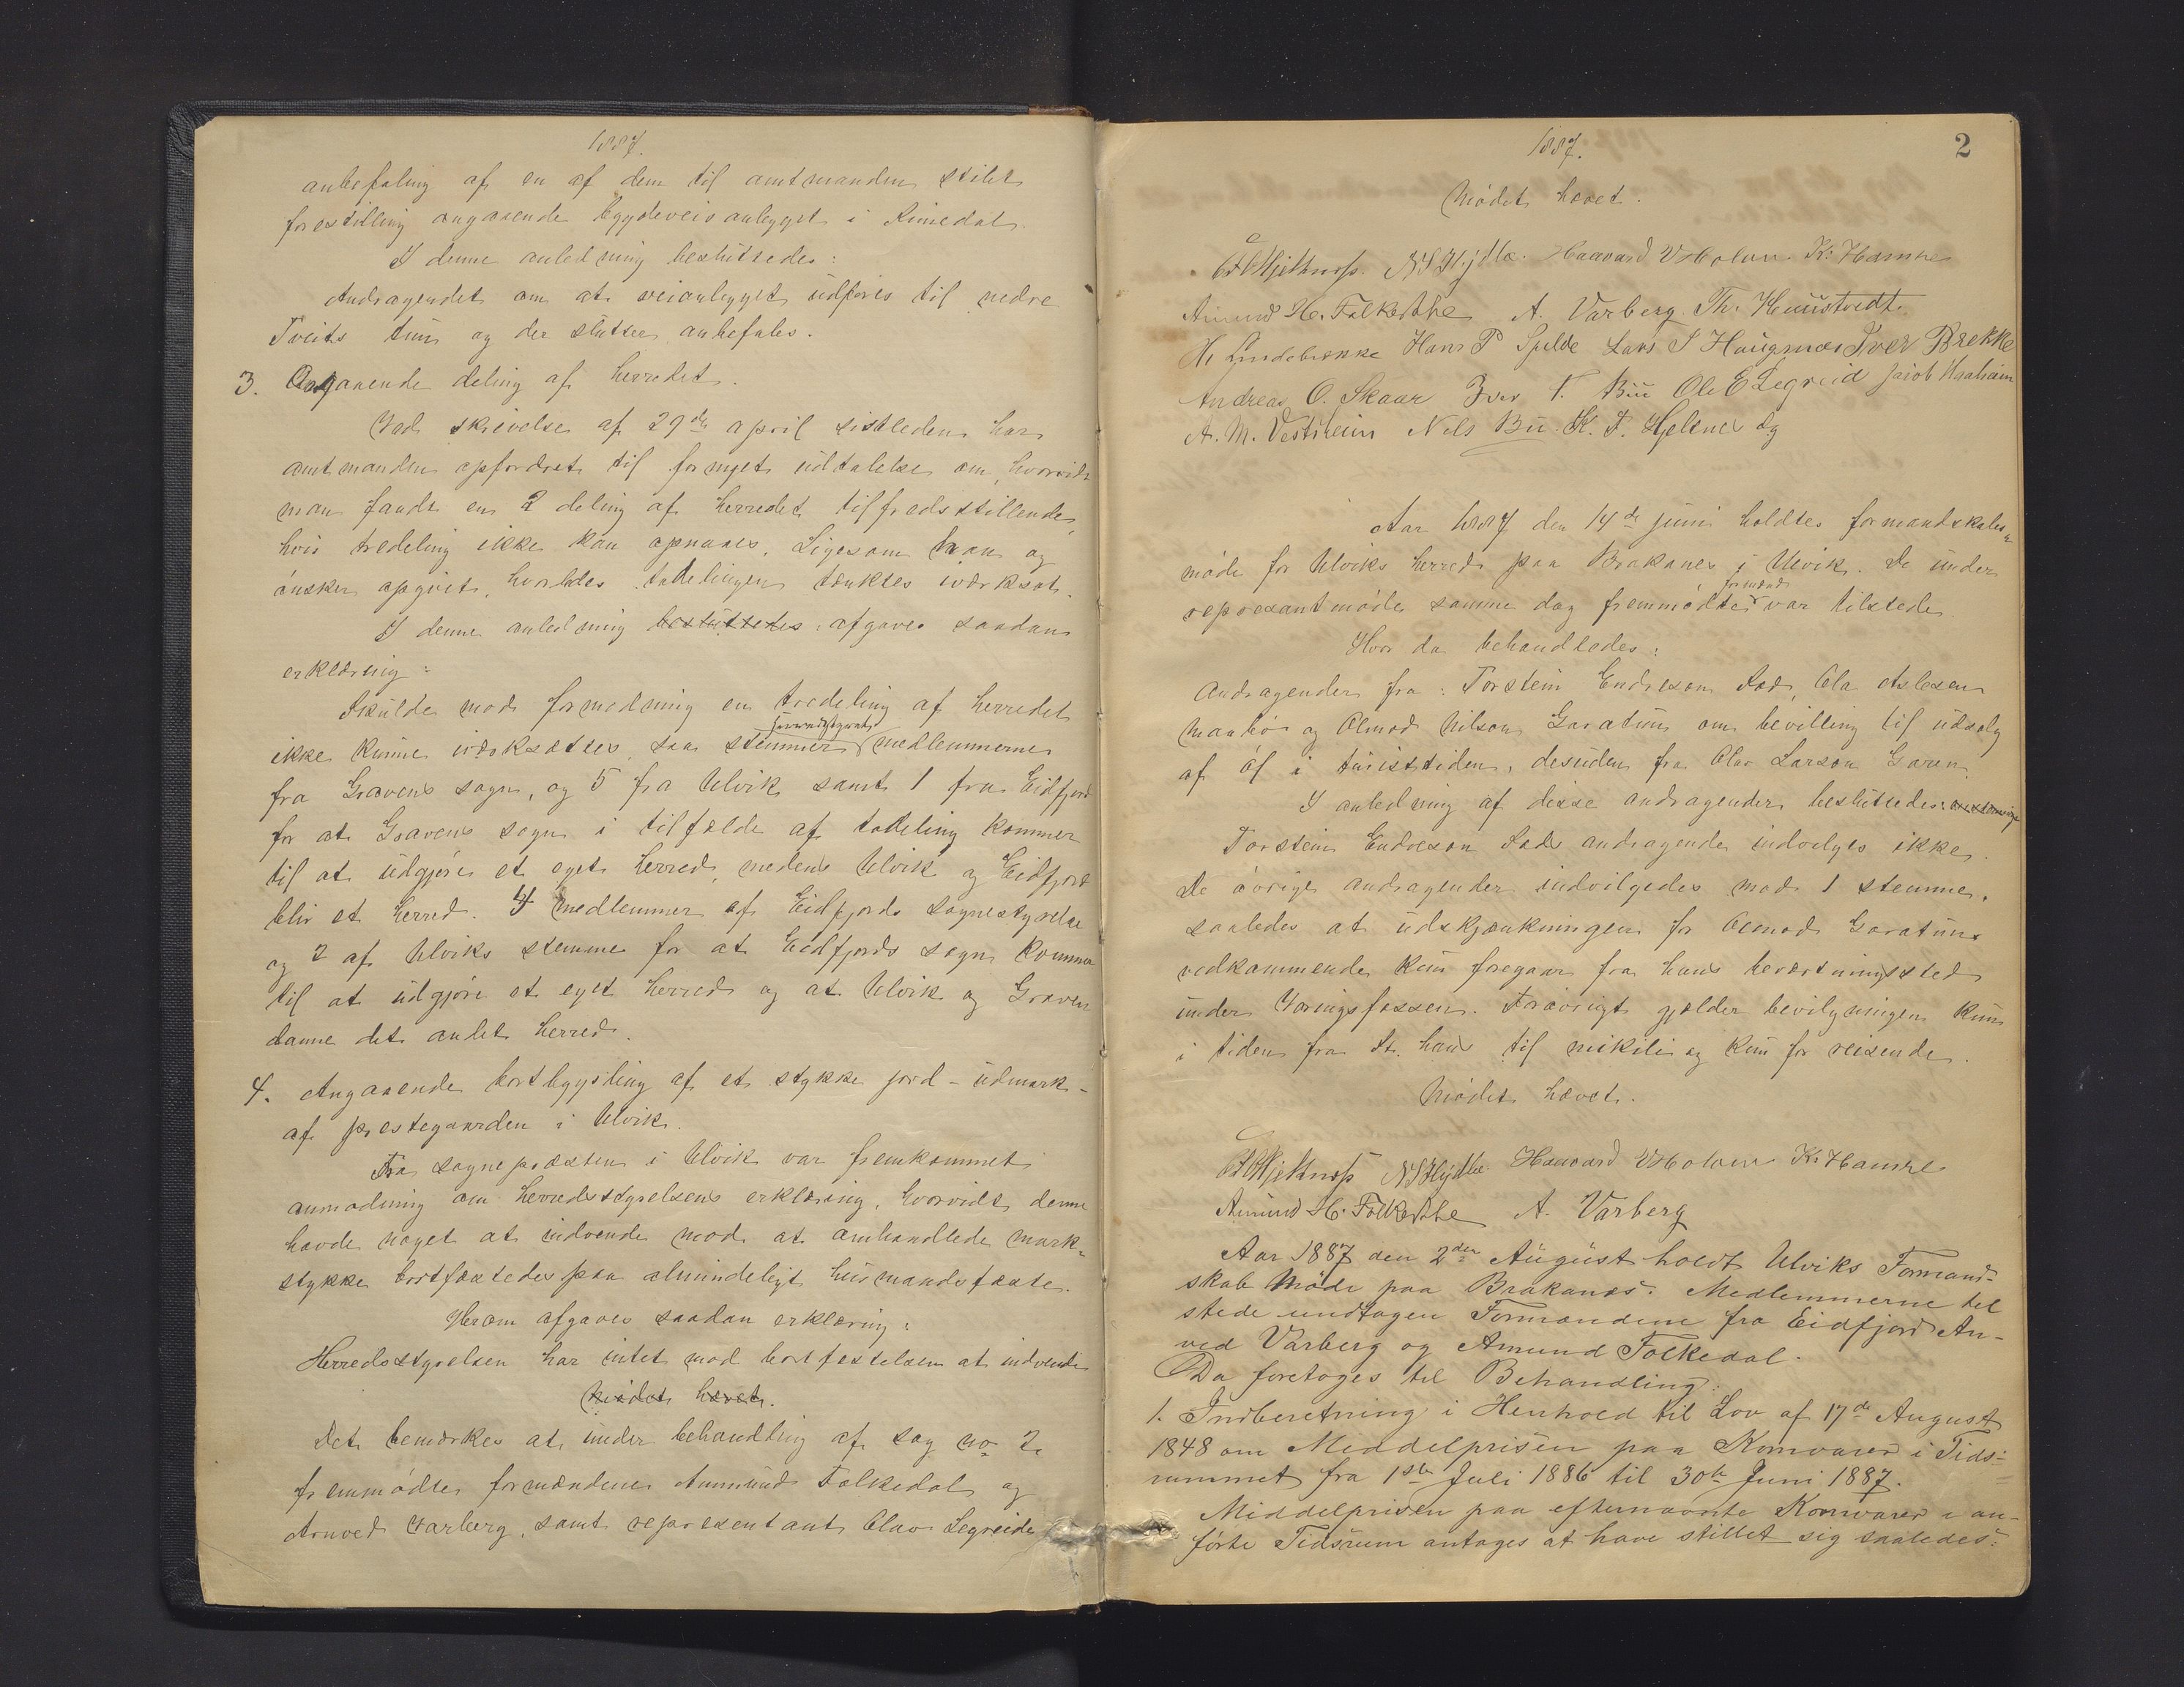 1887.
anbefaling af en af dem til amtmanden stilet
forestilling angaaende bygdeveisanlegget i Simedal.
I denne anledning besluttedes:
Andragendet om at veianlegget udføres til nedre
Tveits tun og der slutter anbefales.
3. Angaaende deling af herredet.
Ved skrivelse af 29de april sistleden har
amtmanden opfordret til fornyet udtalelse om, hvorvidt
man fandt en 2 deling af herredet tilfredsstillende,
hvis tredeling ikke kan opnaaes. Ligesom han og
ønsker opgivt, hvorledes todelingen tænktes iverksat.
I denne anledning besluttedes: afgaves saadan
erklæring:
Skulde mod formodning en tredeling af herredet
ikke kunne iverksættes, saa stemmer herredsstyrets medlemmerne
fra Gravens sogn, og 5 fra Ulvik samt 1 fra Eidfjord
for at Gravens sogn i tilfælde af todeling kommer
til at udgjøre et eget herred, medens Ulvik og Eidfjord
blir et herred. 4 medlemmer af Eidfjords sognestyrelse
og 2 af Ulviks stemme for at Eidfjords sogn kommer
til at udgjøre et eget herred og at Ulvik og Graven
danne det andet herred.
4. Angaaende bortbygsling af et stykke jord - udmark -
af prestegaarden i Ulvik.
Fra sognepræsten i Ulvik var fremkommet
anmodning om herredsstyrelsens erklæring, hvorvidt denne
havde noget at indvende mod at omhandlede mark-
stykke bortfæstedes paa almindeligt husmandsfæste.
Herom afgaves saadan erklæring:
Herredsstyrelsen har intet mod bortfestelsen at indvende
Mødet hævet.
Det bemerkes at under behandling af sag no 2
fremmødte formændene Ammund Folkedal og
Arnved Varberg, samt representant Olav Legreide
1887.
2
Mødet hævet.
NSHylla. Haavard Holven K. Hamre
Amund H. Folkedahl A. Varberg. Th.
H. Lindebrekke Hans P Spilde Lars S Haugmoe Iver Brekke
Andreas O. Skaar Iver T. Bu Ole E Legreid Jacob Haaheim
A. M. Vestrheim Nils Bu. K. T. Hjeltnes dy
Aar 1887 den 14de juni holdtes formandskabs-
møde for Ulviks herred paa Brakanes i Ulvik. De under
represantmøde samme dag fremmødte formænd var tilstede
Hvor da behandledes:
Andragender fra: Torstein Endreson Sæd, Ola Aslesen
Maubø og Olmod Nilson Garatun om bevilling til udsalg
af øl i turisttiden, desuden fra Olav Larson Garen.
I anledning af disse andragender besluttedes:
Torstein Endreson Sæds andragende indvilges ikke.
De øvrige andragender indvilgedes mod 1 stemme,
saaledes at udskjænkningen for Olmod Garatuns
vedkommende kun foregaar fra hans beværtningssted
under Vøringsfossen. Forøvrigt gjælder bevilgningen kun
i tiden fra St. hans til mikili og kun for reisende.
Mødet hævet.
NSHylla. Haavard Holven K. Hamre
Amund H. Folkedahl A. Varberg
Aar 1887 den 2den August holdt Ulviks Formand-
skab Møde paa Brakanæs. Medlemmerne til
stede undtagen Formændene fra Eidfjord An-
ved Varberg og Amund Folkedal.
Da foretoges til Behandling:
1. Indberetning i Henhold til Lov af 17de August
1848 om Middelprisen paa Kornvarer i Tids-
rummet fra 1ste Juli 1886 til 30te Juni 1887.
Middelprisen paa efternævnte Kornvarer i an-
førte Tidsrum antages at have stillet sig saaledes: